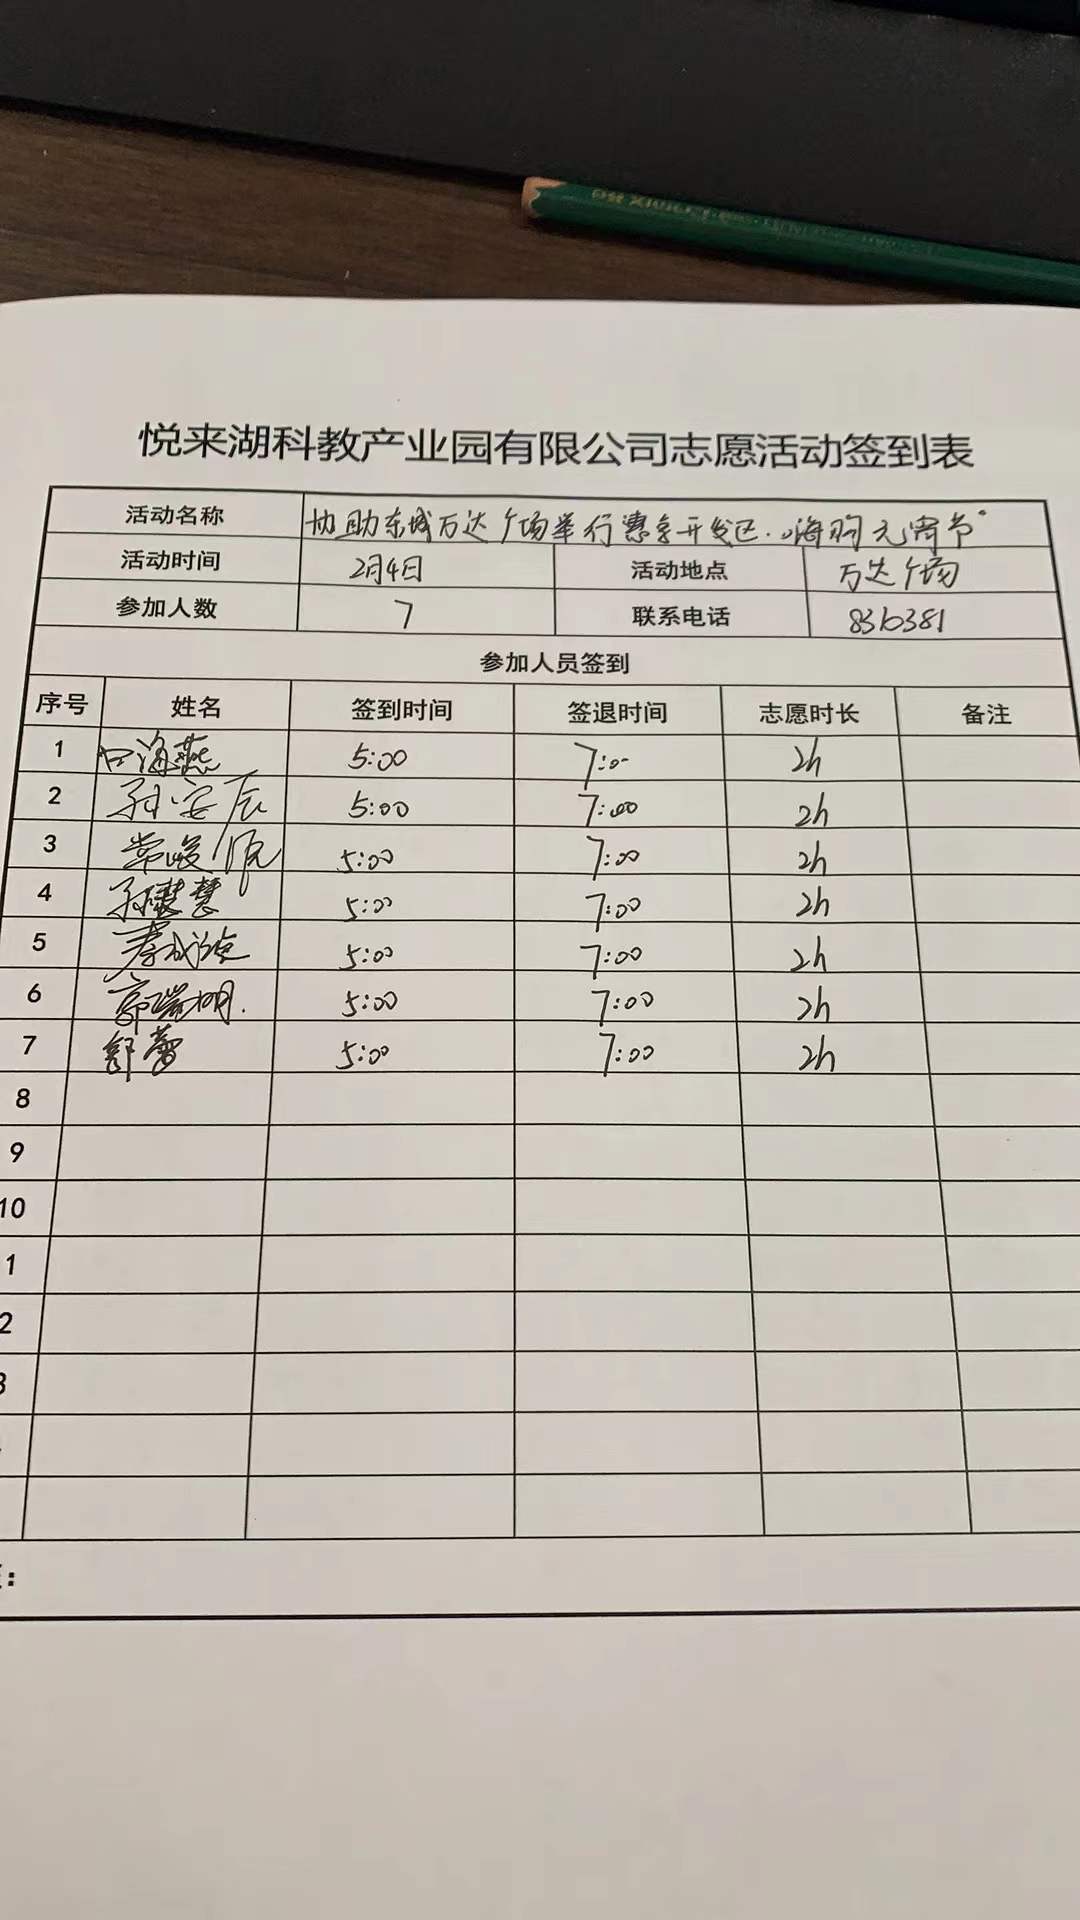 悦来湖科教产业园有限公司志愿活动签到表
活动名称 协助东城万达广场举行惠享开发区."嗨购元宵节"
活动时间 2月4日 活动地点 万达广场
参加人数 7 联系电话 8310381
参加人员签到
序号 姓名 签到时间 签退时间 志愿时长 备注
1 海燕 5:00 7:0- 2h
2 孙安辰 5:00 7:00 2h
3 常峻 5:00 7:00 2h
4 孙慧慧 5:00 7:00 2h
5 5:00 7:00 2h
6 郭瑞明. 5:00 7:00 2h
7 舒蕾 5:00 7:00 2h
8
9
10
1
2
3
: